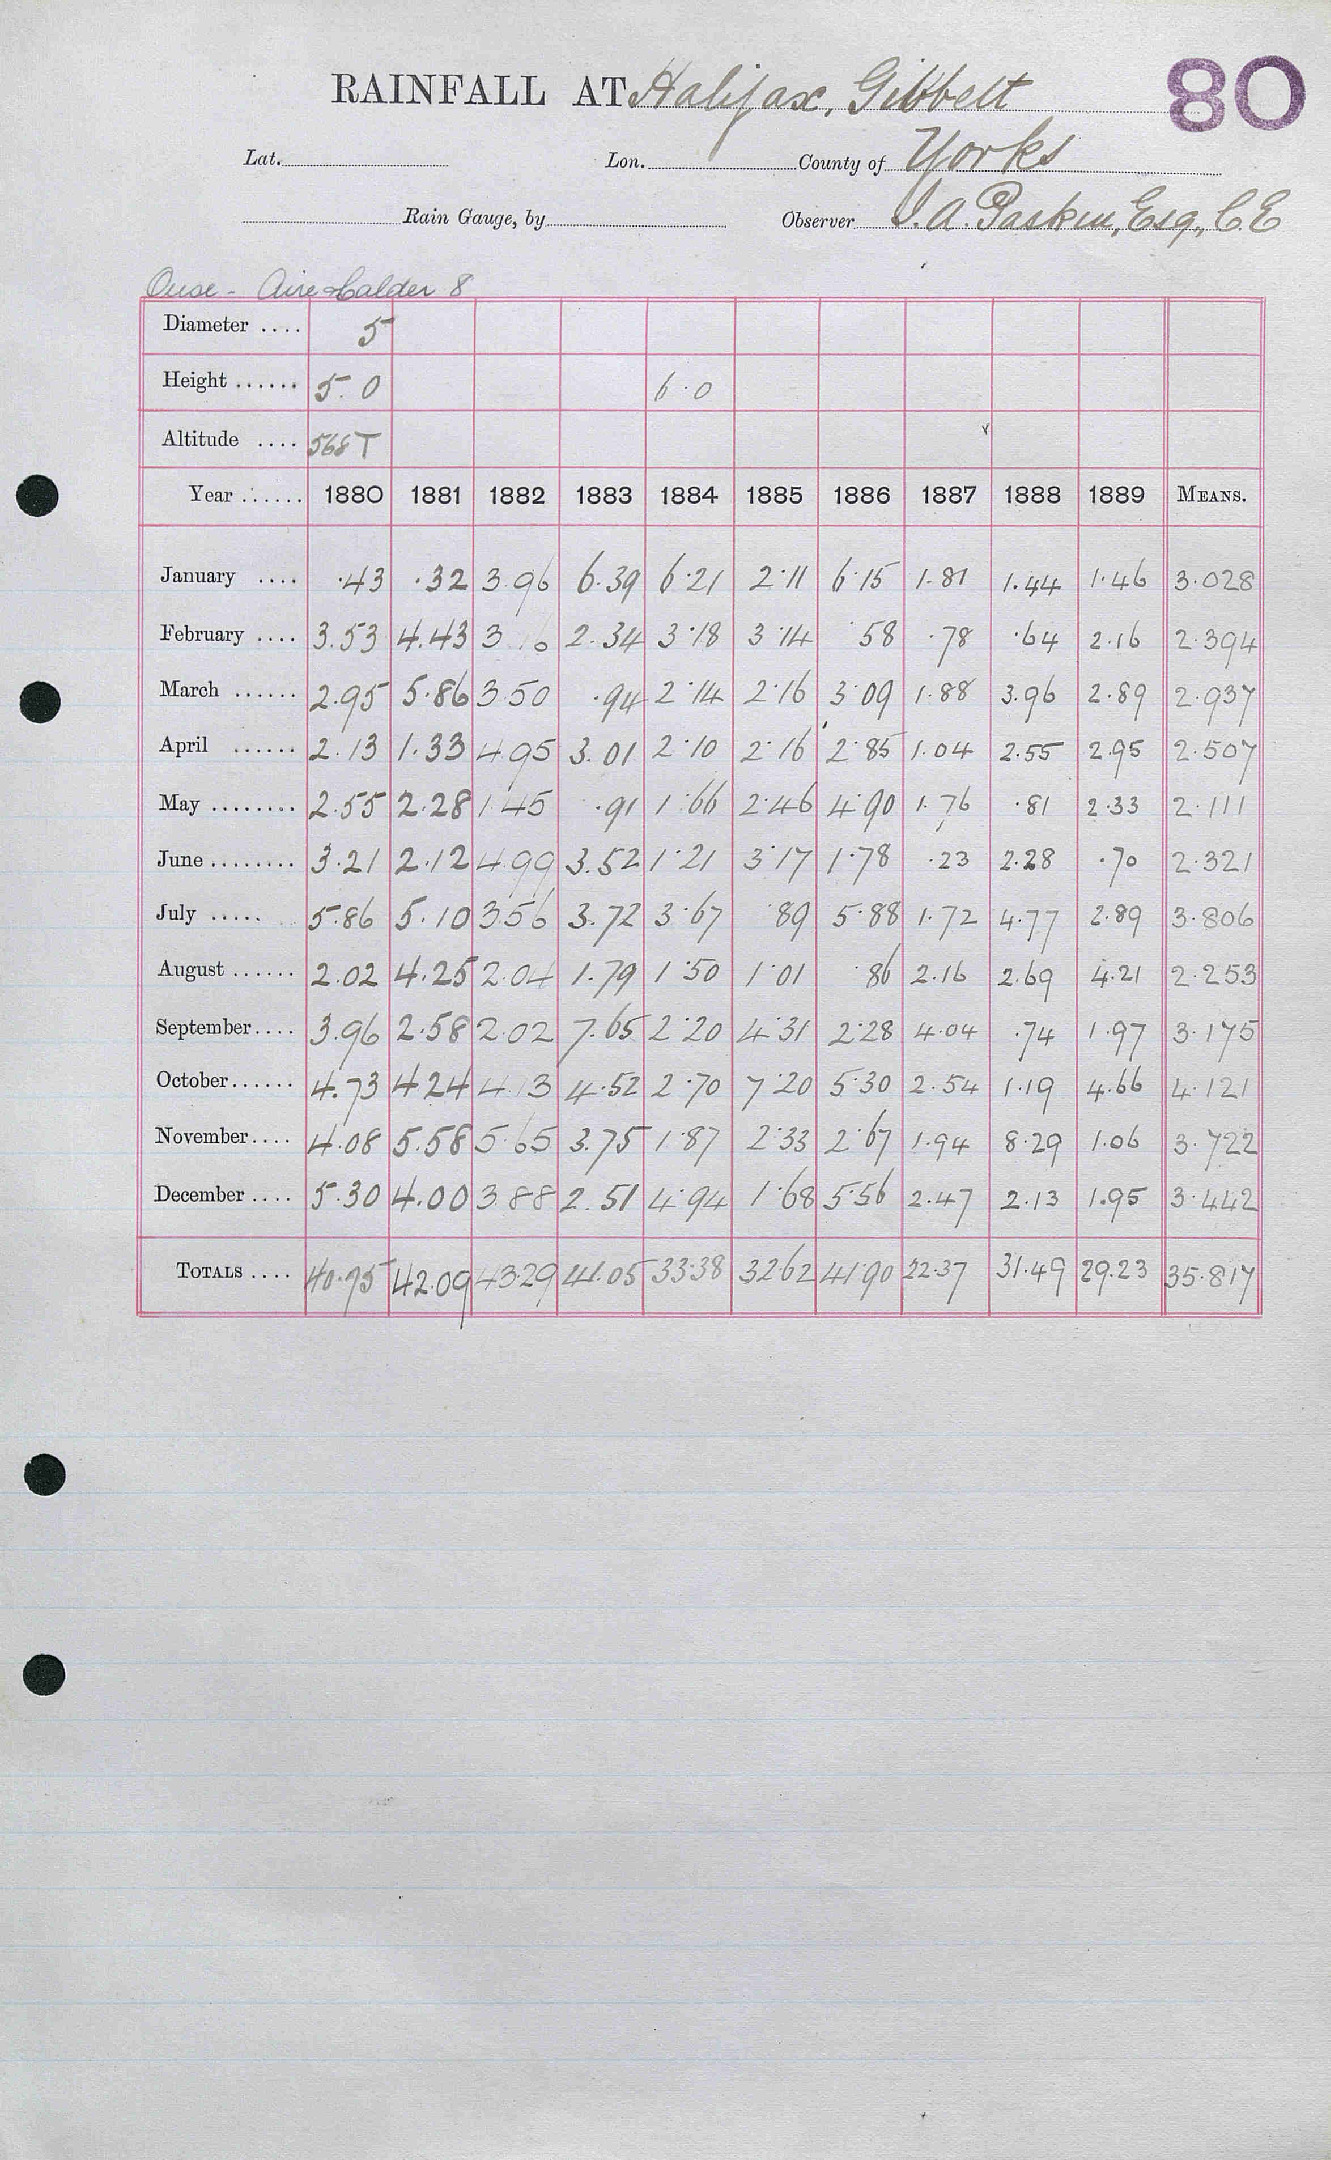 RAINFALL AT Halifax, Gibbett 80
Lat. Lon. County of Yorks
Rain Gauge, by Observer J. A. Paskin, Esq., C.E
Ouse - Aire & Calder 8
Diameter .... 5
Height ...... 5.0 6.0
Altitude .... 568 T
Year ...... 1880 1881 1882 1883 1884 1885 1886 1887 1888 1889 MEANS.
January .... .43 .32 3.96 6.39 6.21 2.11 6.15 1.81 1.44 1.46 3.028
February .... 3.53 4.43 3.16 2.34 3.18 3.14 .58 .78 .64 2.16 2.394
March ...... 2.95 5.86 3.50 .94 2.14 2.16 3.09 1.88 3.96 2.89 2.937
April ...... 2.13 1.33 4.95 3.01 2.10 2.16 2.85 1.04 2.55 2.95 2.507
May ........ 2.55 2.28 1.45 .91 1.66 2.46 4.90 1.76 .81 2.33 2.111
June ........ 3.21 2.12 4.99 3.52 1.21 3.17 1.78 .23 2.28 .70 2.321
July ..... 5.86 5.10 3.56 3.72 3.67 .89 5.88 1.72 4.77 2.89 3.806
August ...... 2.02 4.25 2.04 1.79 1.50 1.01 .86 2.16 2.69 4.21 2.253
September.... 3.96 2.58 2.02 7.65 2.20 4.31 2.28 4.04 .74 1.97 3.175
October...... 4.73 4.24 4.13 4.52 2.70 7.20 5.30 2.54 1.19 4.66 4.121
November.... 4.08 5.58 5.65 3.75 1.87 2.33 2.67 1.94 8.29 1.06 3.722
December .... 5.30 4.00 3.88 2.51 4.94 1.68 5.56 2.47 2.13 1.95 3.442
TOTALS .... 40.75 42.09 43.29 41.05 33.38 32.62 41.90 22.37 31.49 29.23 35.817